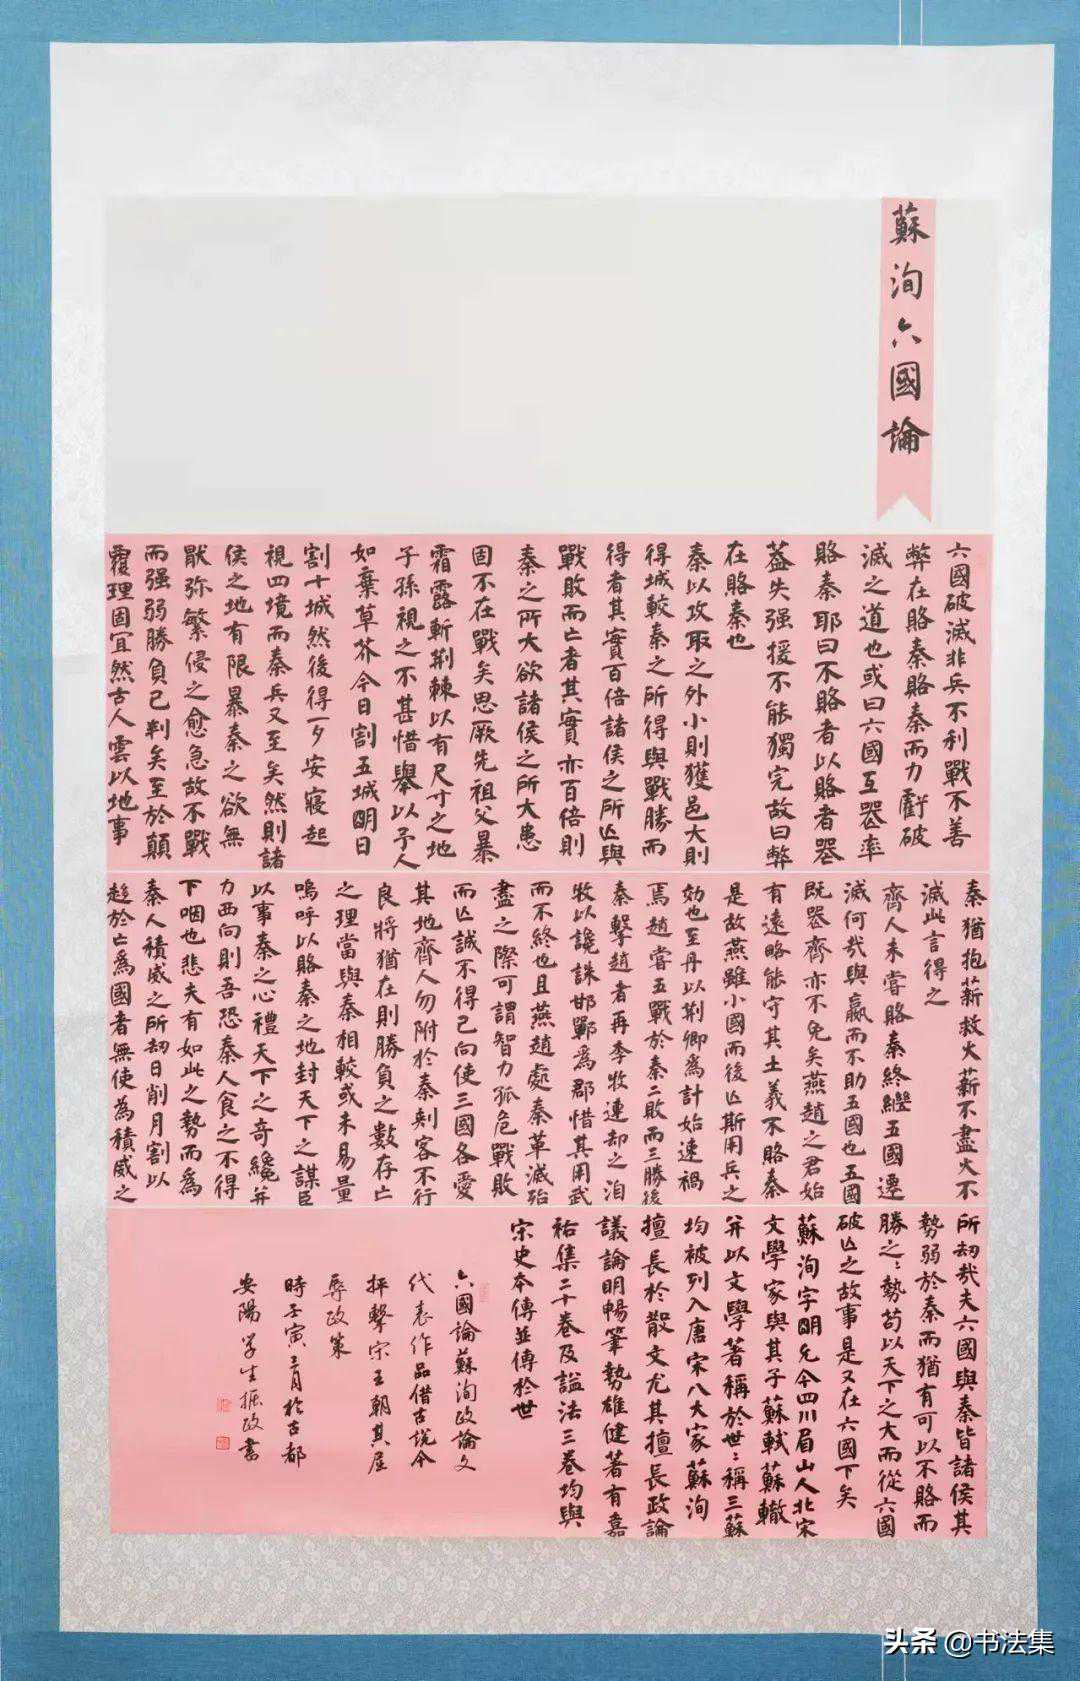 蘇洵六國論
六國破滅非兵不利戰不善
弊在賂秦賂秦而力虧破
滅之道也或曰六國互喪率
賂秦耶曰不賂者以賂者喪
蓋失强援不能獨完故曰弊
在賂秦也
秦以攻取之外小則獲邑大則
得城較秦之所得與戰勝而
得者其實百倍諸侯之所亡與
戰敗而亡者其實亦百倍則
秦之所大欲諸侯之所大患
固不在戰矣思厥先祖父暴
霜露斬荆棘以有尺寸之地
子孫視之不甚惜舉以予人
如棄草芥今日割五城明日
割十城然後得一夕安寢起
視四境而秦兵又至矣然則諸
侯之地有限暴秦之欲無
猒弥繁侵之愈急故不戰
而强弱勝負已判矣至於顛
覆理固宜然古人雲以地事
秦猶抱薪救火薪不盡火不
滅此言得之
齊人未嘗賂秦終繼五國遷
滅何哉與嬴而不助五國也五國
既喪齊亦不免矣燕趙之君始
有遠略能守其土義不賂秦
是故燕雖小國而後亡斯用兵之
効也至丹以荆卿爲計始速禍
焉趙嘗五戰於秦二敗而三勝後
秦擊趙者再李牧連却之洎
牧以讒誅邯鄲爲郡惜其用武
而不終也且燕趙處秦革滅殆
盡之際可謂智力孤危戰敗
而亡誠不得已向使三國各愛
其地齊人勿附於秦刺客不行
良將猶在則勝負之數存亡
之理當與秦相較或未易量
嗚呼以賂秦之地封天下之謀臣
以事秦之心禮天下之奇纔并
力西向則吾恐秦人食之不得
下咽也悲夫有如此之勢而爲
秦人積威之所刧日削月割以
趨於亡爲國者無使為積威之
所刧哉夫六國與秦皆諸侯其
勢弱於秦而猶有可以不賂而
勝之之勢苟以天下之大而從六國
破亡之故事是又在六國下矣
蘇洵字明允今四川眉山人北宋
文學家與其子蘇軾蘇轍
并以文學著稱於世世稱三蘇
均被列入唐宋八大家蘇洵
擅長於散文尤其擅長政論
議論明暢筆勢雄健著有嘉
祐集二十卷及謚法三卷均與
宋史本傳並傳於世
六國論蘇洵政論文
代表作品借古說今
抨擊宋王朝其屈
辱政策
時壬寅三月於古都
安陽學生振政書
头条 @书法集